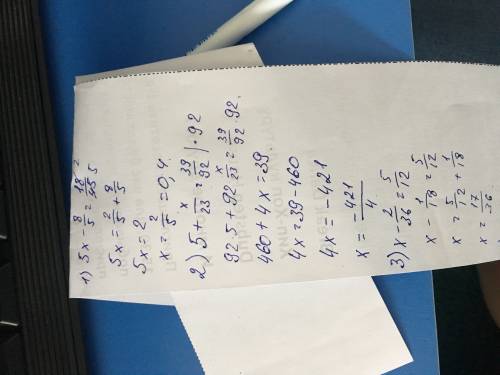 1) 5x - 8/5 = 18/45 2 5
5x = 2/5 + 8/5
5x = 2
x = 2/5 = 0,4.
2) 5 + x/23 = 39/92 | · 92
92 5 + 92 · x/23 = 39/92 · 92.
460 + 4x = 39
4x = 39 - 460
4x = -421
x = - 421/4
3) x - 2/36 = 5/12
x - 1/18 = 5/12
x = 5/12 + 1/18
x = 17/36